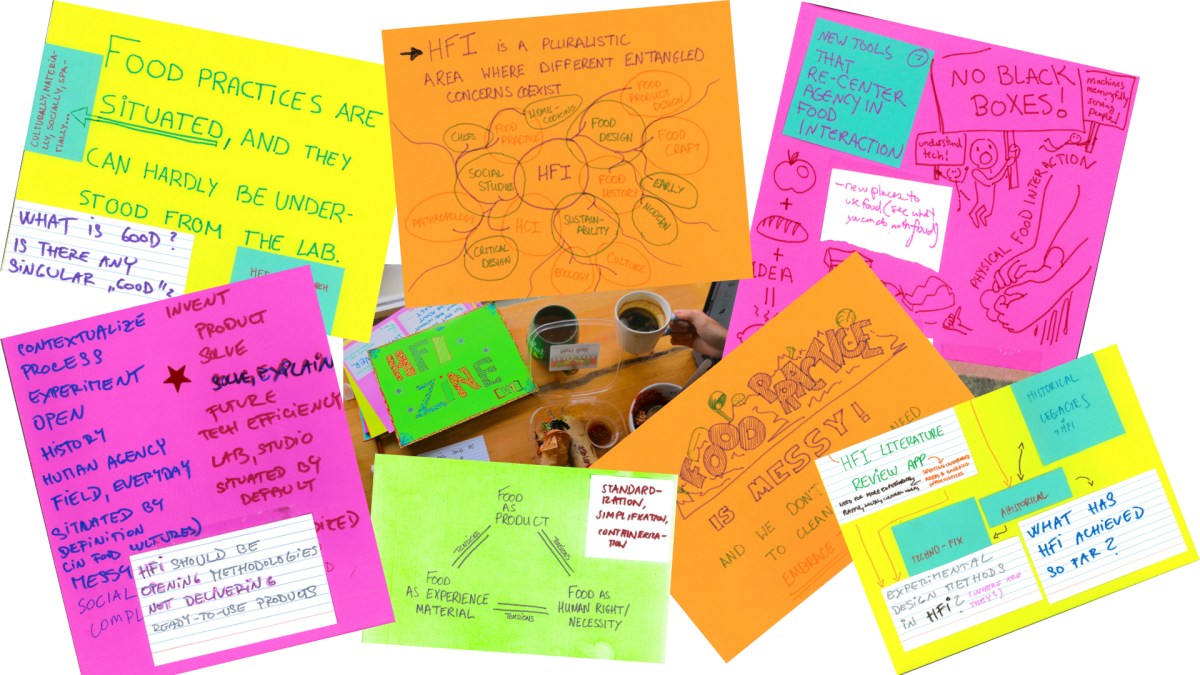 FOOD PRACTICES ARE
SITUATED, AND THEY
CAN HARDLY BE UNDER-
STOOD FROM THE LAB.
CULTURALLY, MATERIA-
LLY, SOCIALLY, SPA-
TIALLY...
WHAT IS GOOD?
IS THERE ANY
SINGULAR „GOOD"?
HFI IS A PLURALISTIC
AREA WHERE DIFFERENT ENTANGLED
CONCERNS COEXIST
HOME-
COOKING
FOOD
PRODUCT
DESIGN
CHEFS
FOOD
PRACTICE
FOOD
DESIGN
FOOD
CRAFT
SOCIAL
STUDIES
HFI
FOOD
HISTORY
EARLY
MODERN
ANTHROPOLOGY
HCI
SUSTAIN-
ABILITY
CRITICAL
DESIGN
ECOLOGY
CULTURE
NEW TOOLS
THAT
RE-CENTER
AGENCY IN
FOOD
INTERACTION
NO BLACK
BOXES!
machines
meaningfully
serving
people!
understand
tech!
- new places to
use food (see what
you can do with food)
+
+
IDEA
=
PHYSICAL FOOD INTERACTION
CONTEXTUALIZE
PROCESS
EXPERIMENT
OPEN
HISTORY
HUMAN AGENCY
FIELD, EVERYDAY
SITUATED BY
DEFINITION
(IN FOOD CULTURES)
MESSY
SOCIAL
COMPL
INVENT
PRODUCT
SOLVE
SOLVE, EXPLAIN
FUTURE
TECH EFFICIENCY
LAB, STUDIO
SITUATED BY
DEFAULT
HFI SHOULD BE
OPENING METHODOLOGIES
NOT DELIVERING
READY-TO-USE PRODUCTS
HFI
ZINE
FOOD
AS
PRODUCT
TENSIONS
TENSIONS
FOOD
AS EXPERIENCE
MATERIAL
TENSIONS
FOOD AS
HUMAN RIGHT/
NECESSITY
STANDARD-
IZATION,
SIMPLIFICATION,
CONTAINERIZA-
TION
FOOD PRACTICE
IS MESSY!
AND WE DON'T NEED
TO CLEAN
EMBRACE
HFI LITERATURE
REVIEW APP
HISTORICAL
LEGACIES
of HFI
AHISTORICAL
TECHNO-FIX
WHAT HAS
HFI ACHIEVED
SO FAR?
EXPERIMENTAL
DESIGN METHODS
IN HFI? (WHERE ARE
THEY?)